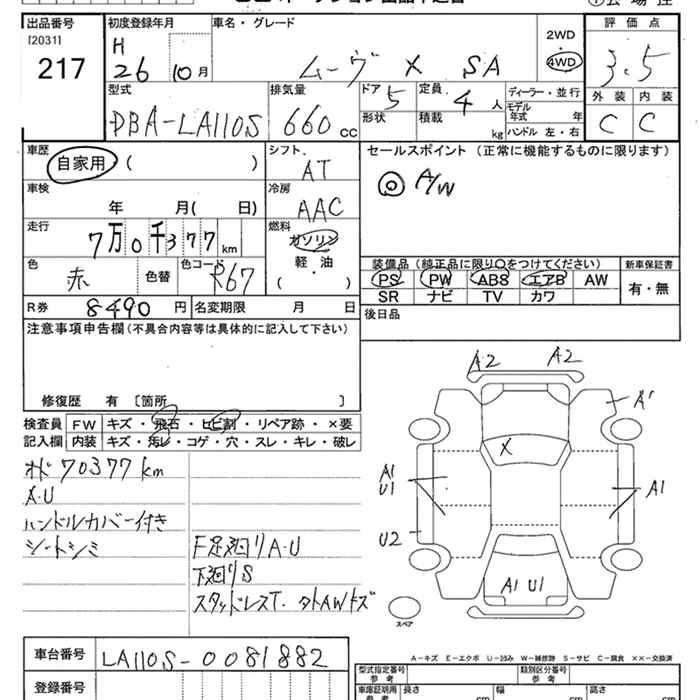 出品番号 初度登録年月 車名・グレード 評価点
[2031]
217
H 26 10月
ムーヴ X SA
2WD
4WD
3.5
外装 内装
C C
型式 排気量 ドア 定員 ディーラー・並行
DBA-LA110S 660cc 5 4人
モデル年式 年
形状 積載 kg ハンドル 左・右
車歴 シフト セールスポイント (正常に機能するものに限ります)
自家用 ( )
AT
◎ A/W
車検 冷房
年 月( 日)
AAC
走行 燃料
7万0千377km
ガソリン
軽・油
( )
色 色替 色コード
赤 R67
装備品 (純正品に限り〇をつけてください) 新車保証書
PS PW ABS エアB AW
SR ナビ TV カワ
有・無
R券 8490円 名変期限 月 日
後日品
注意事項申告欄 (不具合内容等は具体的に記入して下さい)
修復歴 有 [箇所 ]
検査員 FW キズ・飛石・ヒビ割・リペア跡・×要
記入欄 内装 キズ・汚レ・コゲ・穴・スレ・キレ・破レ
オド70377km
A・U
ハンドルカバー付き
シートシミ
F足廻りA・U
下廻りS
スタッドレスT.
A2 A2
A1
X
A1
U1
A1
U2
A1 U1
スペア
車台番号 LA110S-0081882
登録番号
A-キズ E-エクボ U-凹み W-補修跡 S-サビ C-腐食 ××-交換済
型式指定番号 参考 類別区分番号 参考
車庫証明用 参考 長さ cm 幅 cm 高さ cm